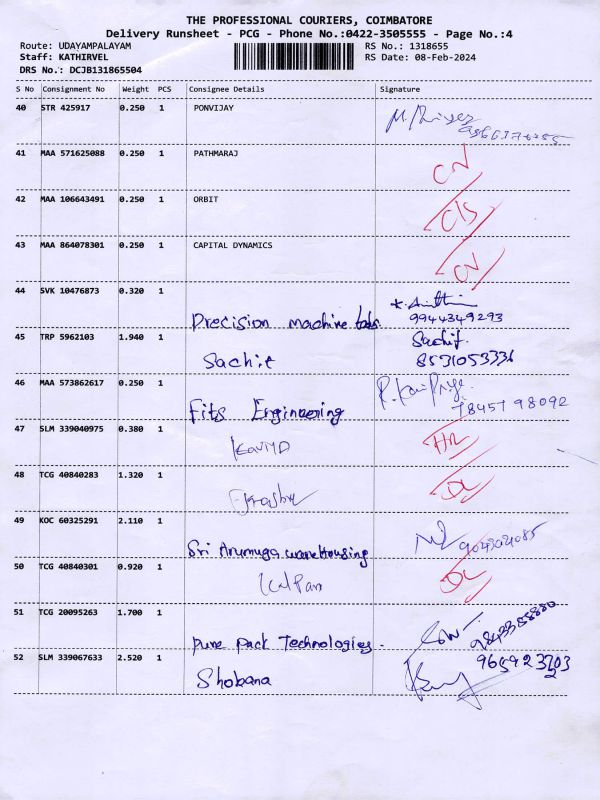 THE PROFESSIONAL COURIERS, COIMBATORE
Delivery Runsheet - PCG - Phone No.:0422-3505555 - Page No.:4
Route: UDAYAMPALAYAM RS No.: 1318655
Staff: KATHIRVEL RS Date: 08-Feb-2024
DRS No.: DCJB131865504
S No Consignment No Weight PCS Consignee Details Signature
40 STR 425917 0.250 1 PONVIJAY
41 MAA 571625088 0.250 1 PATHMARAJ CN
42 MAA 106643491 0.250 1 ORBIT C/S
43 MAA 864078301 0.250 1 CAPITAL DYNAMICS CN
44 SVK 10476873 0.320 1
Precision machine 9944349293
45 TRP 5962103 1.940 1 Sachit.
Sachit 8531053336
46 MAA 573862617 0.250 1
Fits Engineering 78457 98092
47 SLM 339040975 0.380 1
48 TCG 40840283 1.320 1 DL
49 KOC 60325291 2.110 1
Sri Arumuga warehousing
50 TCG 40840301 0.920 1 DL
Kalpan
51 TCG 20095263 1.700 1
Pure pack Technologies.
52 SLM 339067633 2.520 1
Shobana